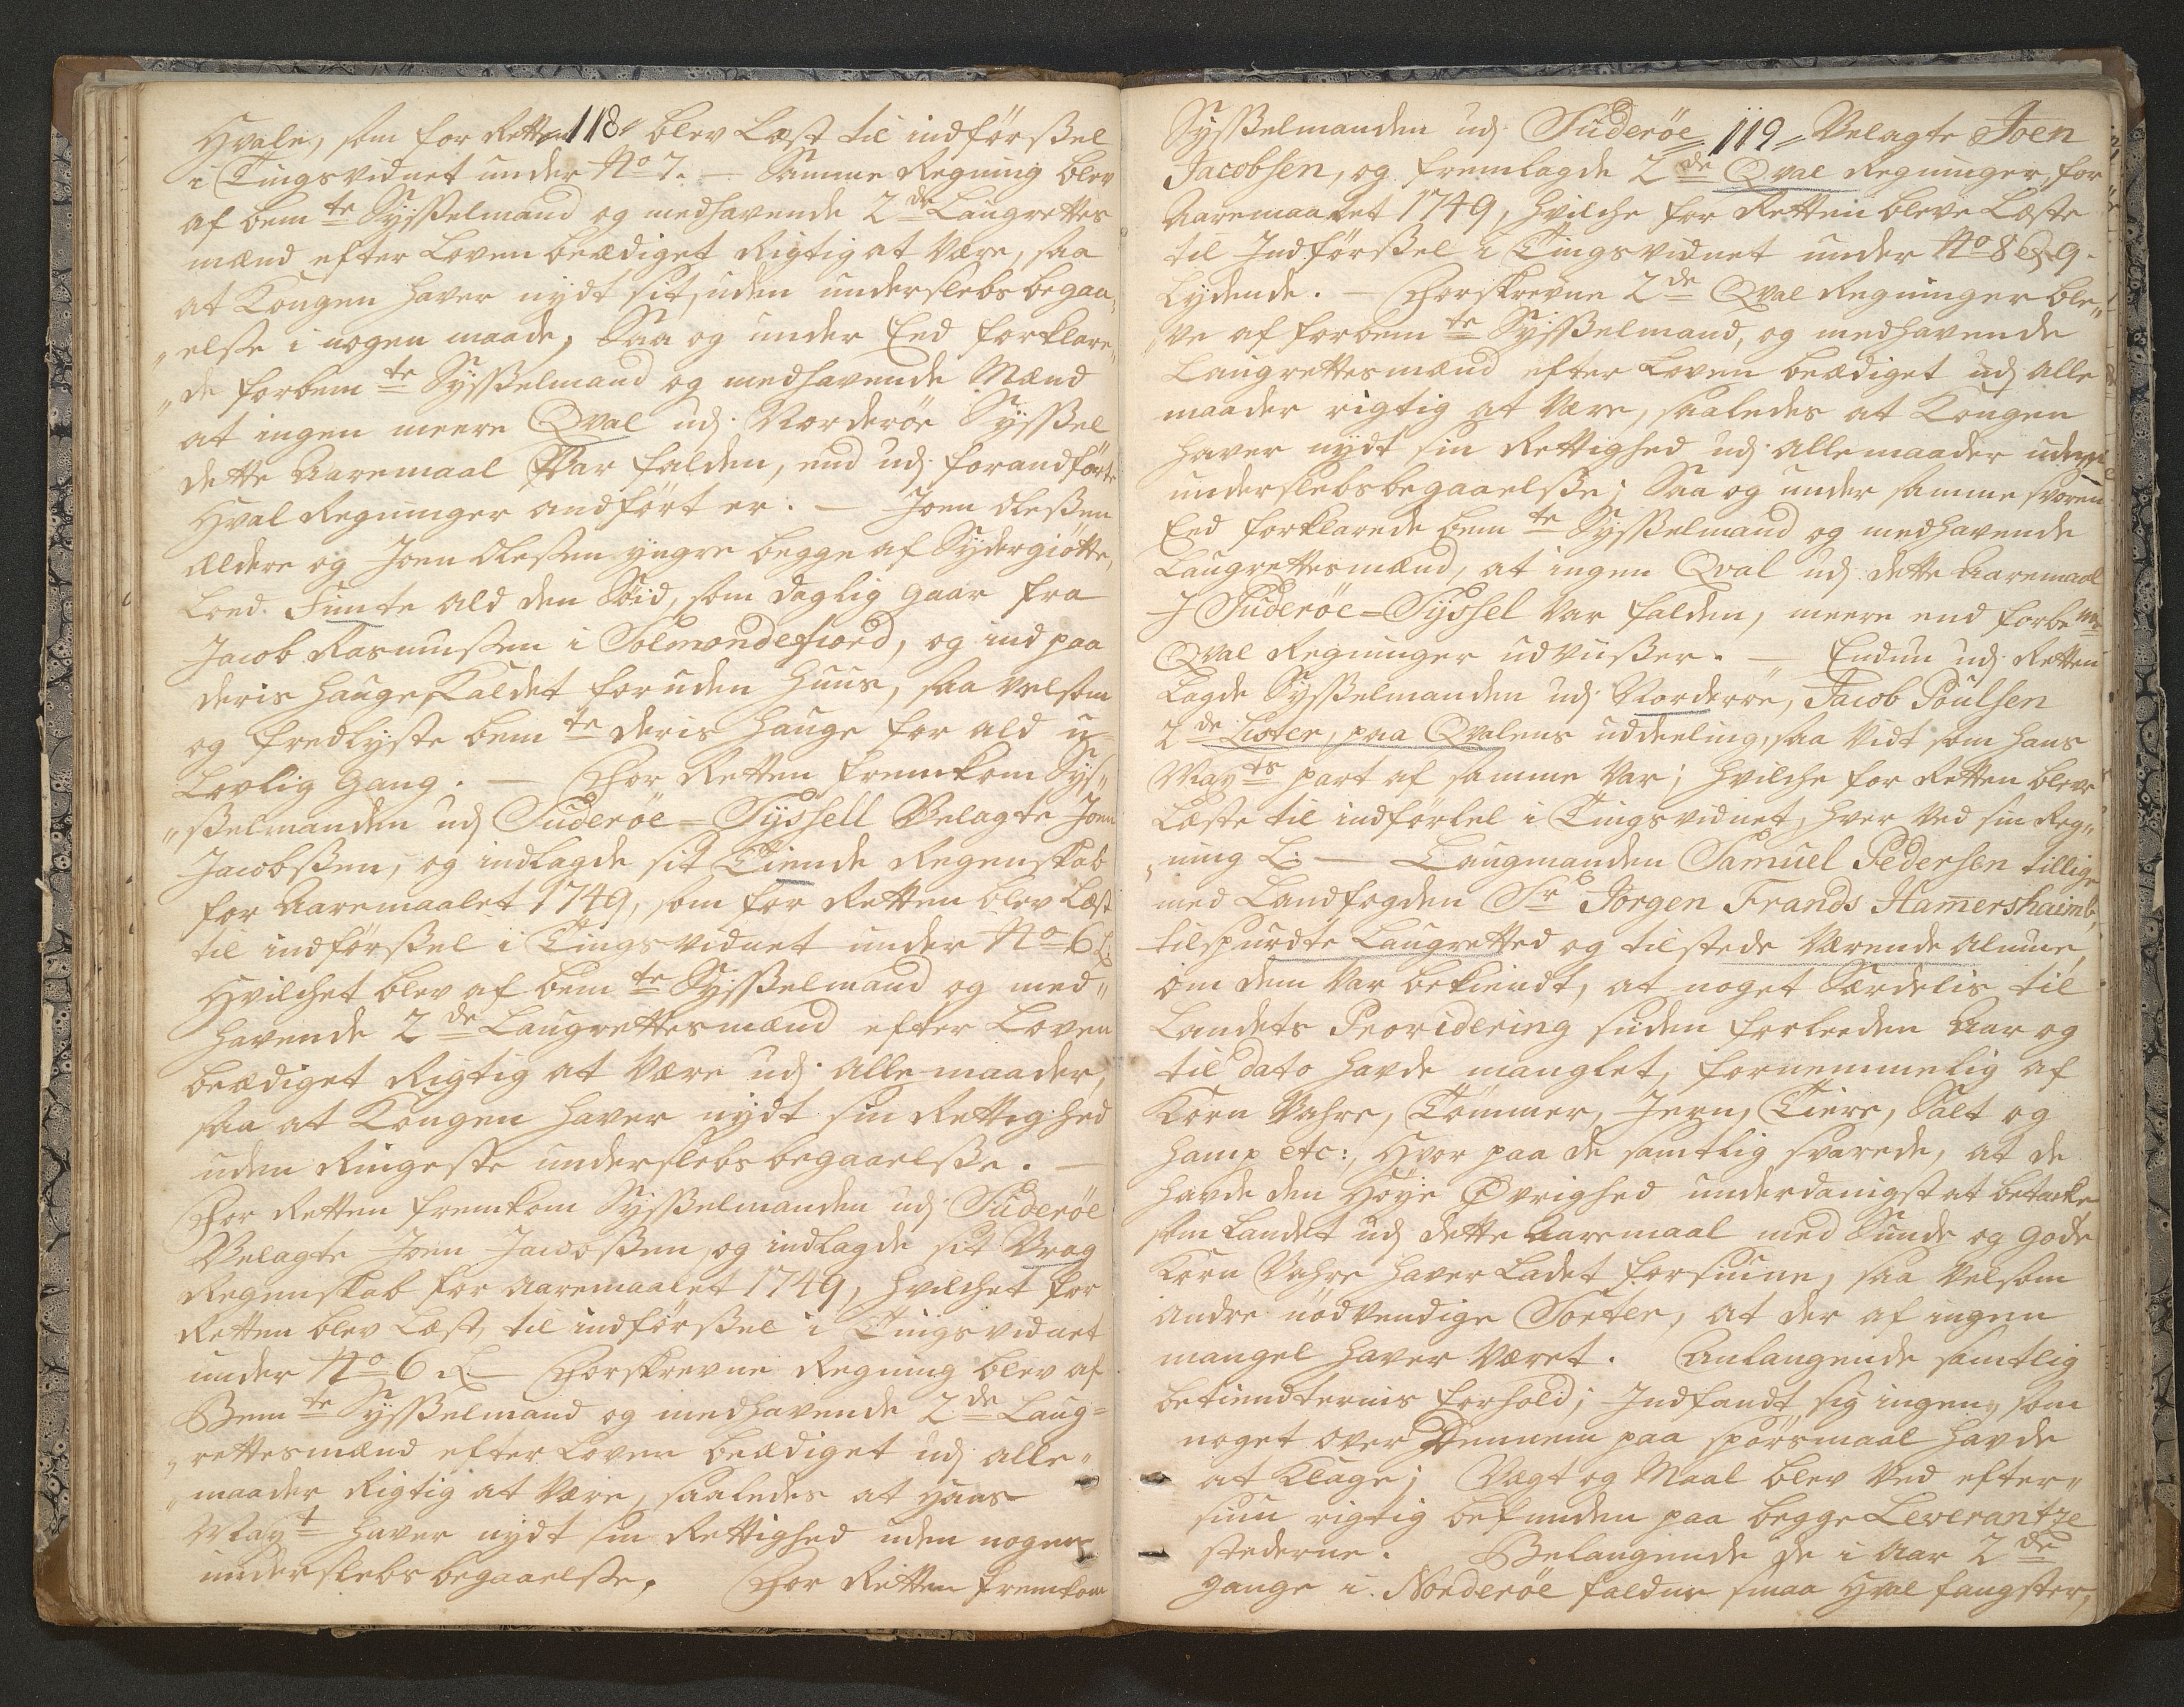 118
Hvale, som for Retten blev Læst til indförßel
i Tingsvidnet under No 7. — Samme Regning blev
af bemte Sysselmand og medhavende 2de Laugrettes
mænd efter Loven beædiget Rigtig at Være, saa
at Kongen haver nydt sit, uden underslebs begaa„
„else i nogen maade, Saa og under Eed forklare„
„de forbemte Sysselmand og medhavende Mænd
at ingen meere Qval udj Norderöe Syssel
dette Aaremaal Var falden, end udj forandförte
Hval Regninger andfört er. — Joen Olesßen
ældere og Joen Olesßen yngre begge af Sydergiötte,
Loed Fimte ald den Stid, som daglig gaar fra
Jacob Rasmusßen i Solmondefiord, og ind paa
deris Hauge, Kaldet foruden Huus, saa velsom
og fredlyste bemte deris Hauge for ald u=
Lovlig Gang. — For Retten fremkom Sys„
„ßelmanden udj Suderöe=Syssell Velagte Joen
Jacobsßen, og indlagde sit Tiende Regenskab
for Aaremaalet 1749, som for Retten blev Læst
til indförßel i Tingsvidnet under No 6 L:
Hvilchet blev af bemte Sysselmand og med„
havende 2de Laugrettesmænd efter Loven
beædiget Rigtig at Være udj alle maader,
saa at Kongen haver nydt sin Rettighed
uden Ringeste underslebs begaaelße. —
For Retten fremkom Sysselmanden udj Suderöe
Velagte Joen Jacobsßen, og indlagde sit Vrag
Regenskab for Aaremaalet 1749, hvilchet for
Retten blev Læst, til indförßel i Tingsvidnet
under No 6 — Forskrevne Regning blev af
Bemte Sysselmand og medhavende 2de Laug=
„rettesmænd efter Loven beædiget udj alle„
„maader Rigtig at Være, saaledes at Hans
Mayt haver nydt sin Rettighed uden nogen
underslebs begaaelße. For Retten fremkom
119
Sysselmanden udj Suderöe Velagte Joen
Jacobsen, og fremlagde 2de Qval Regninger, for
Aaremaalet 1749, hvilche for Retten bleve Læste
til Indförßel i Tingsvidnet under No 8 og 9.
Lydende. — Forskrevne 2de Qval Regninger ble„
„ve af forbemte Sysselmand, og medhavende
Laugrettesmænd efter Loven beædiget udj alle
maader rigtig at Være, saaledes at Kongen
haver nydt sin Rettighed udj alle maader uden
underslebs begaaelße; Saa og under samme svoren
Eed forklarede bemte Sysselmand og medhavende
Laugrettesmænd, at ingen Qval udj dette Aaremaal
J Suderöe=Syssel Var falden, meere end forbemte
Qval Regninger udviißer. — Endnu udj Retten
lagde Sysselmanden udj Norderöe, Jacob Poulsen
2de Lister, paa Qvalens uddeeling, saa Vidt som hans
Mayts part af samme Var; hvilche for Retten bleve
Læste til indförßel i Tingsvidnet, hver Ved sin Reg„
„ning L: — Laugmanden Samuel Pedersen tillige
med Landfogden Sr Jörgen Frands Hamershaimb,
tilspurdte Laugretted og tilstede Værende Almue,
om dem Var bekiendt, at noget Særdelis til
Landets Providering siden forleeden Aar og
til dato havde manglet, fornemmelig af
Korn Vahre, Tömmer, Jern, Tiere, Salt og
Hamp etc:, Hvor paa de samtlig svarede, at de
havde den Höye Övrighed underdanigst at betacke,
som Landet udj dette Aaremaal med Sunde og gode
Korn Vahre haver Ladet forsiune, saa Velsom
andre nödvendige Sorter, at der af ingen
mangel haver Været. Anlangende samtlig
betiendternis forhold; Indfandt sig ingen, som
noget over Dennem paa spörsmaal havde
at Klage; Vægt og Maal blev Ved efter„
siun rigtig befunden paa begge Leverantze
stederne. Belangende de i Aar 2de
gange i Norderöe faldne smaa Hval fangster,